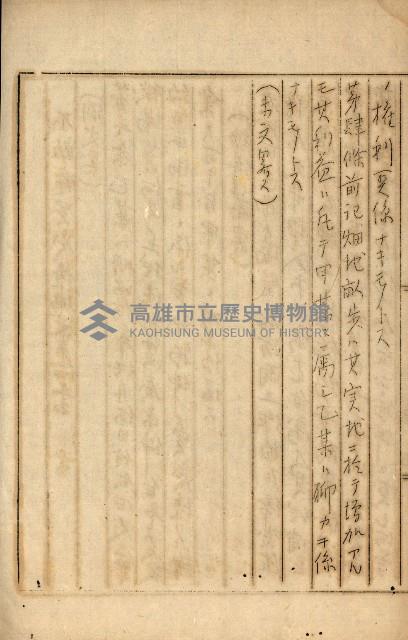 ノ權利関係ナキモノトス
第肆條前記畑地畝歩ハ其実地ニ於テ増加アル
モ其利益ハ凡テ甲某ニ属シ乙某ハ聊カモ係
ナキモノトス
(末文畧ス)
高雄市立歷史博物館
KAOHSIUNG MUSEUM OF HISTORY